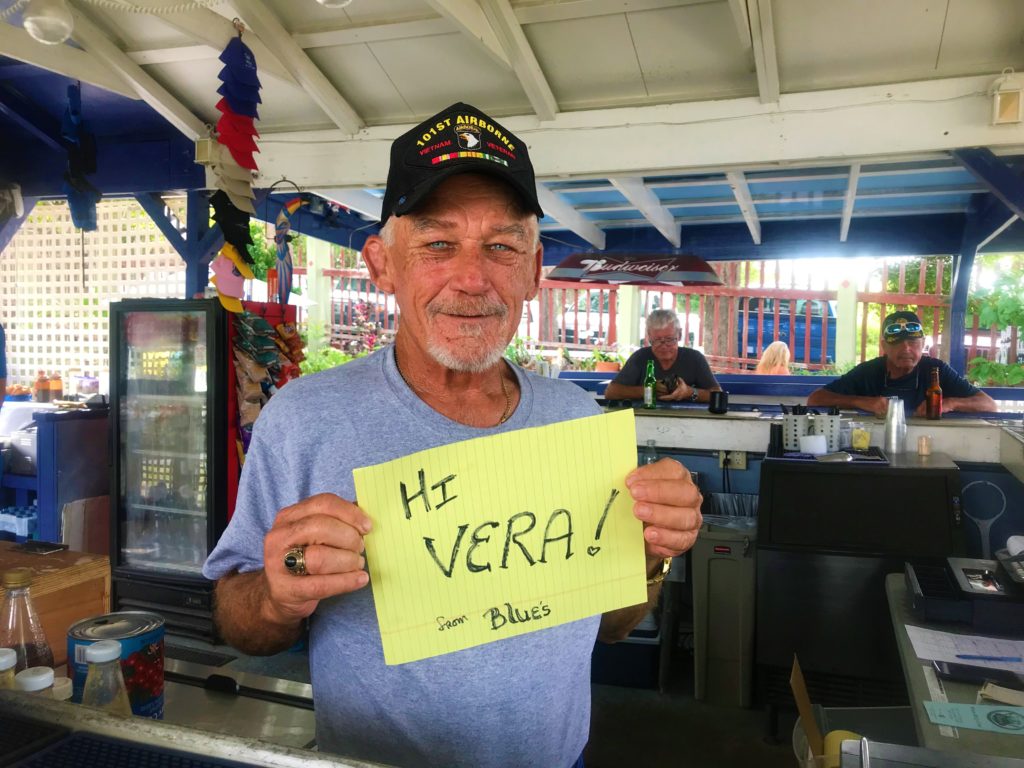 101ST AIRBORNE
AIRBORNE
VIETNAM VETERAN
Budweiser
HI
VERA!
from BLUE'S